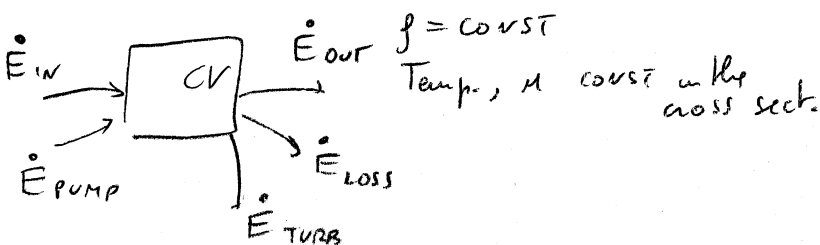 Ė IN
CV
Ė OUT
ρ = CONST
Temp., u CONST in the
cross sect.
Ė PUMP
Ė LOSS
Ė TURB